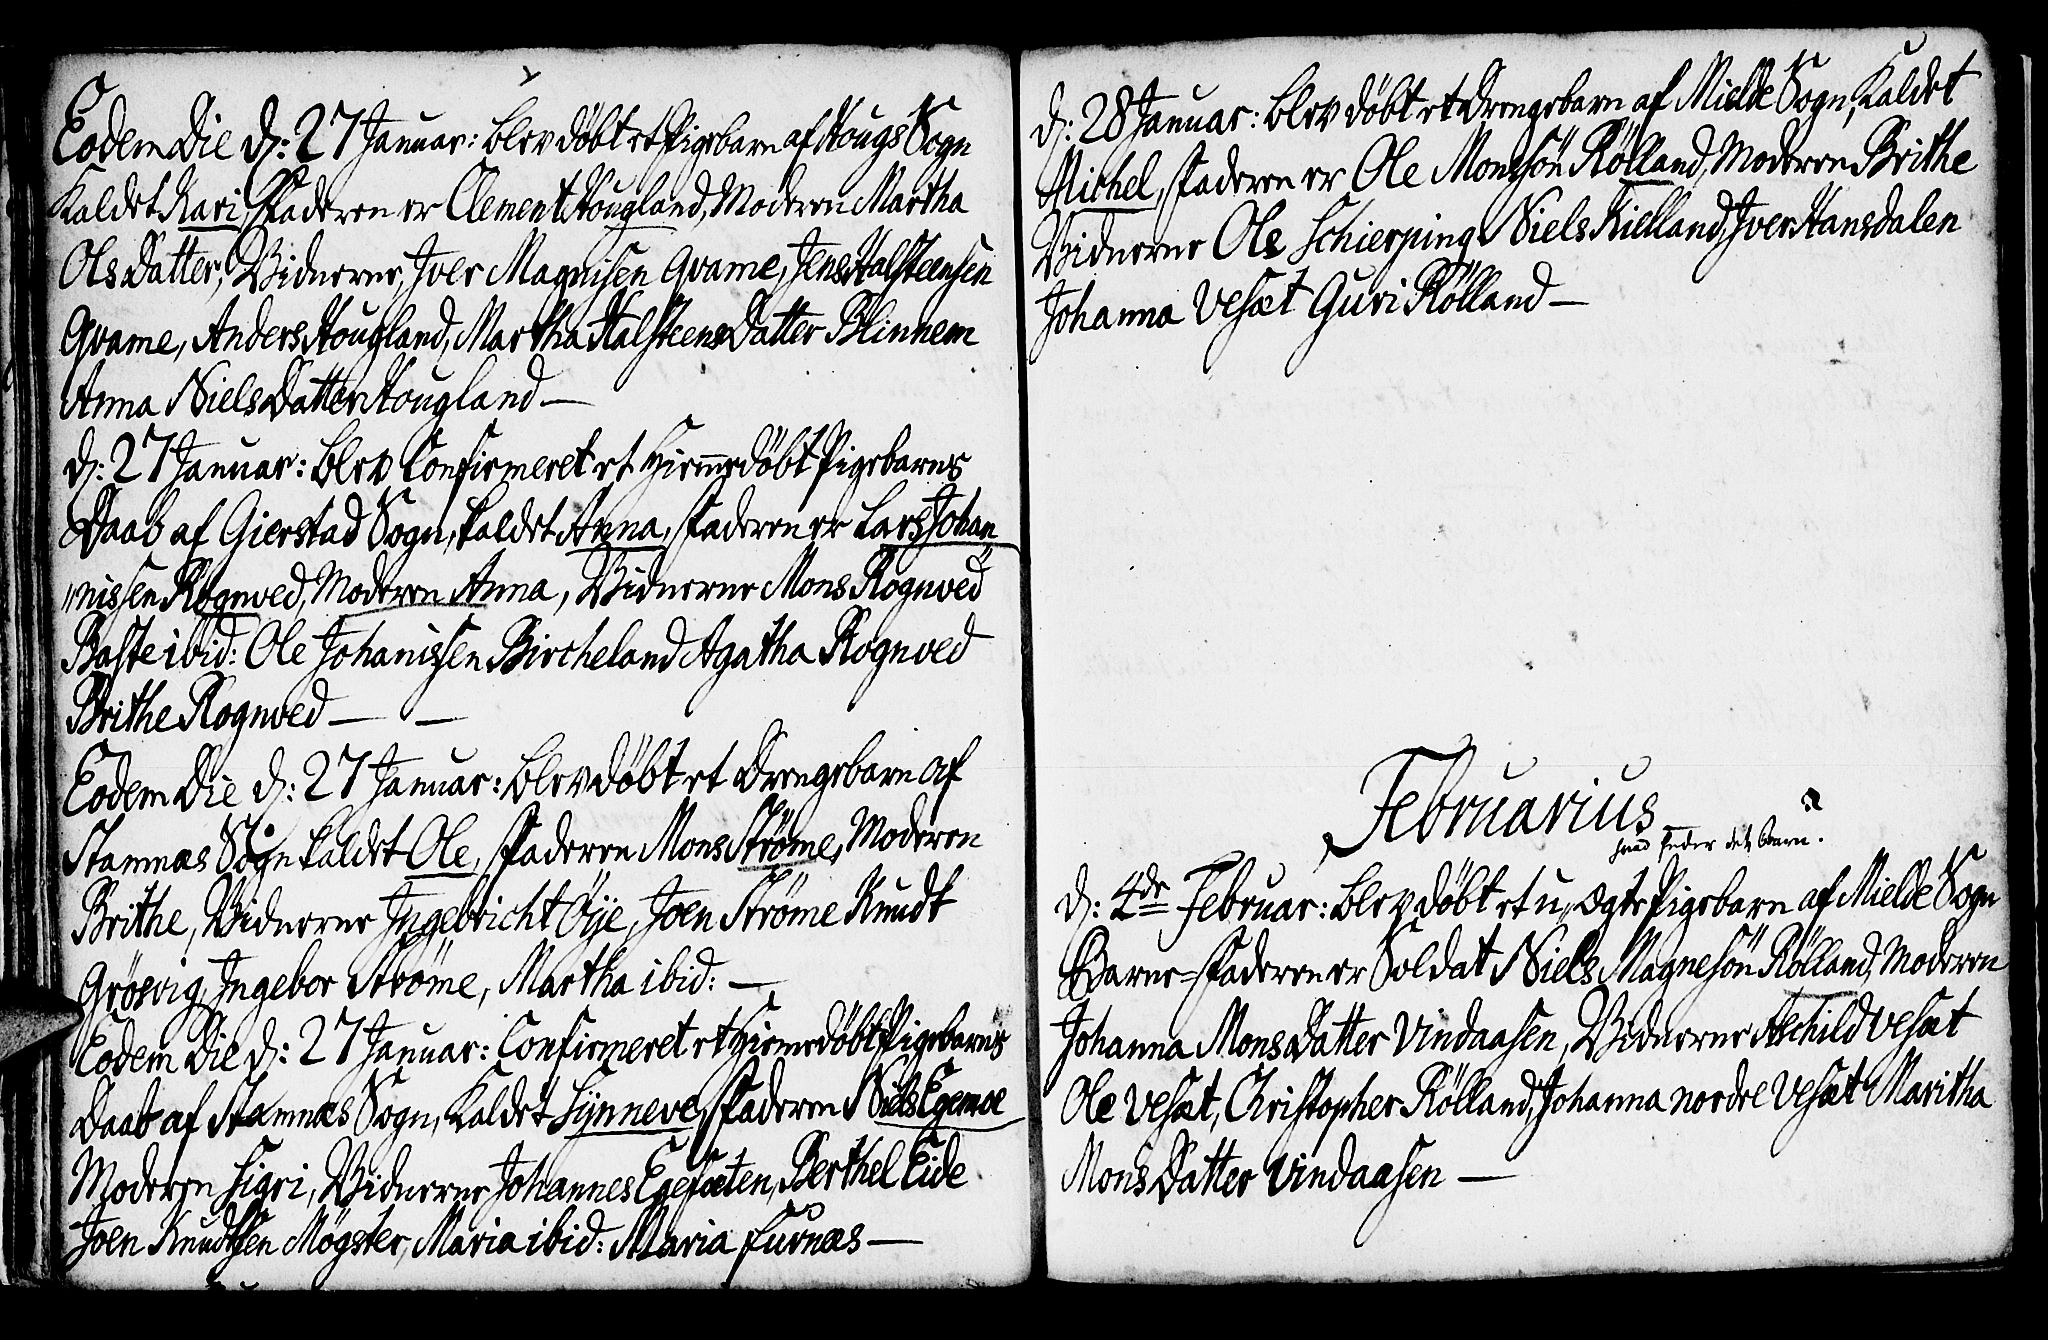 Eodem Die d: 27 Januar: blev döbt et Pigebarn af Hougs Sogn
Kaldet Kari, Faderen er Clement Hougland, Moderen Martha
Ols Datter, Vidnerne, Iver Magnisen Qvame, Jens Halsteensen
Qvame, Anders Hougland, Martha Halsteens Datter Blinnem
Anna Niels Datter Hougland —
d: 27 Januar: blev Confirmeret et Hiemedöbt Pigebarns
Daab af Gierstad Sogn, kaldet Anna, Faderen er Lars Johan„
„nissen Rognved, Moderen Anna, Vidnerne Mons Rognved
Baste ibid: Ole Johanissen Bircheland Agatha Rognved
Brithe Rognved — —
Eodem Die d: 27 Januar: blev döbt et Drengebarn af
Stamnæs Sogn kaldet Ole, Faderen Mons Ströme, Moderen
Brithe, Vidnerne Ingebricht Öÿe, Joen Ströme Knudt
Grösvig, Ingebor Ströme, Martha ibid: —
Eodem Die d: 27 Januar: Confirmeret et Hiemedöbt Pigebarns
Daab af Stamnæs Sogn, Kaldet Sÿnneve, Faderen Niels Egemoe
Moderen Sigri, Vidnerne Johannes Egesæten, Berthel Eide
Joen Knudtsen Mögster, Maria ibid: Maria Furnæs —
d: 28 Januar: blev döbt et Drengebarn af Mielde Sogn, Kaldet
Michel, Faderen er Ole Monssön Rölland, Moderen Brithe
Vidnerne Ole Schierping Niels Kielland, Iver Hansdalen
Johanna Vesæt Guri Rölland —
Februarius
hvad heder det Barn?
d: 4de Februar: blev döbt et u„ægte Pigebarn af Mielde Sogn
Barne-Faderen er Soldat Niels Magnesön Rölland, Moderen
Johanna Mons Datter Vindaasen, Vidnerne Aschild Vesæt
Ole Vesæt, Christopher Rölland, Johanna nordre Vesæt Maritha
Mons Datter Vindaasen —